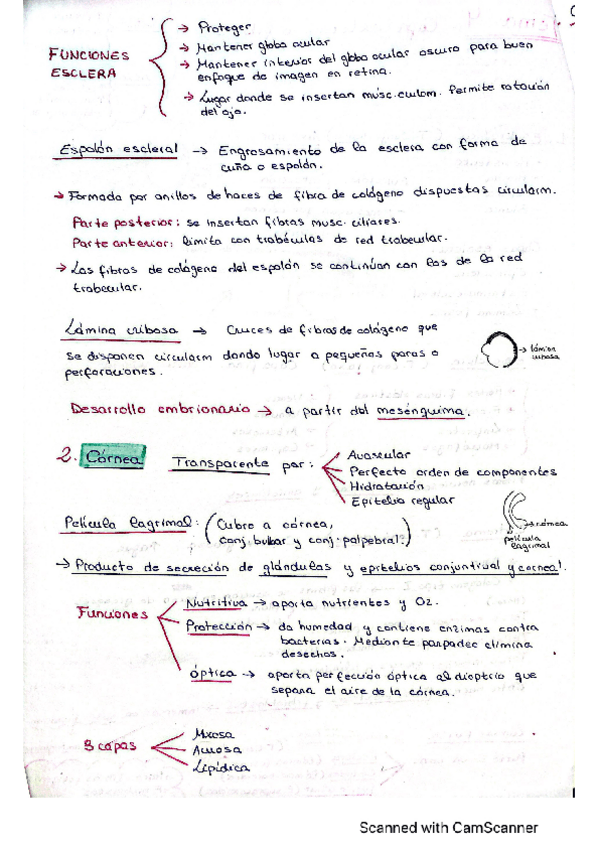 FUNCIONES ESCLERA
→ Proteger
→ Mantener globo ocular
→ Mantener interior del globo ocular oscuro para buen
enfoque de imagen en retina.
→ Lugar donde se insertan musc. culom. Permite rotación
del ojo.
Espolón escleral → Engrosamiento de la esclera con forma de
cuña o espolón.
→ Formada por anillos de haces de fibra de colágeno dispuestas circularm.
Parte posterior: se insertan fibras musc. ciliares.
Parte anterior: limita con trabéculas de red trabecular.
→ Las fibras de colágeno del espolón se continúan con las de la red
trabecular.
Lámina cribosa → Cruces de fibras de colágeno que
se disponen circularm dando lugar a pequeños poros o
perforaciones.
→ lámina
cribosa
Desarrollo embrionario → a partir del mesénquima.
2. Córnea
Transparente por:
Avascular
Perfecto orden de componentes
Hidratación
Epitelio regular
Película lagrimal: (Cubre a córnea,
conj. bulbar y conj. palpebral.)
→ córnea
película
lagrimal
→ Producto de secreción de glándulas y epitelios conjuntival y corneal.
Funciones
Nutritiva → aporta nutrientes y O2.
Protección → da humedad y contiene enzimas contra
bacterias. Mediante parpadeo elimina
desechos.
óptica → aporta perfección óptica al dioptrio que
separa el aire de la córnea.
3 capas
Mucosa
Acuosa
Lipídica
Scanned with CamScanner